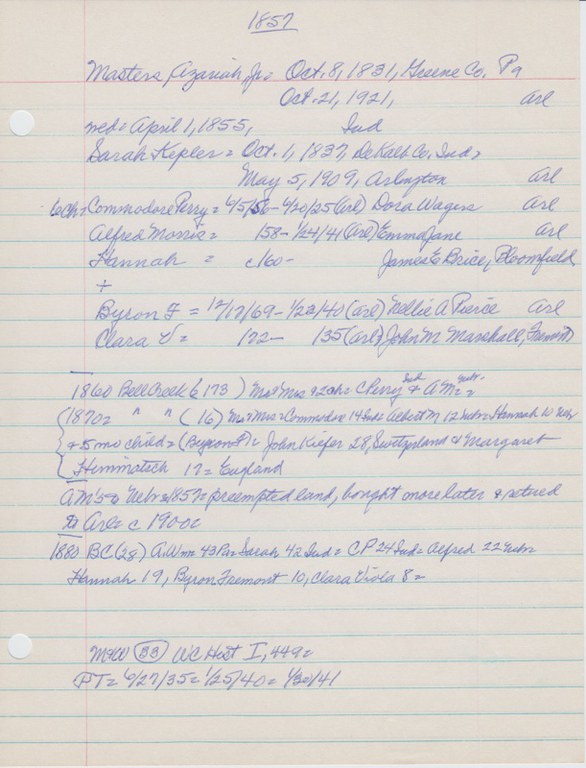 1857
Masters Azariah Jr = Oct. 8, 1831, Greene Co. Pa
Oct. 21, 1921, Arl
md = April 1, 1855, Ind
Sarah Kepler = Oct. 1, 1837, DeKalb Co. Ind,
May 5, 1909, Arlington Arl
6 ch = Commodore Perry = 6/5/56 - 4/20/25 (Arl) Dora Wagers Arl
Alfred Morris = 158 - 1/24/41 (Arl) Emma Jane Arl
Hannah = c 160 - James E Brice, Bloomfield
+
Byron F = 12/17/69 - 1/22/40 (Arl) Nellie A Pierce Arl
Clara V = 172 - 135 (Arl) John M Marshall, Fremont
1860 Bell Creek (6 173) Mr & Mrs + 2 ch = C Perry Ind & A M = Nebr.
(1870 = " " (16) Mr & Mrs = Commodore 14 Ind = Albert M 12 Nebr = Hannah 10 Neb
+ 5 mo child = (Byron F) = John Kiefer 28, Switzerland & Margaret
Himmatsch 17 = England
AM's to Nebr = 1857 = preempted land, bought more later & retired
to Arl = c 1900 =
1880 BC (28) A. Wm 43 Pa = Sarah 42 Ind = CP 24 Ind = Alfred 22 Nebr
Hannah 19, Byron Fremont 10, Clara Viola 8 =
M & W (33) WC Hist I, 449 =
PT = 6/27/35 = 1/25/40 = 1/30/41